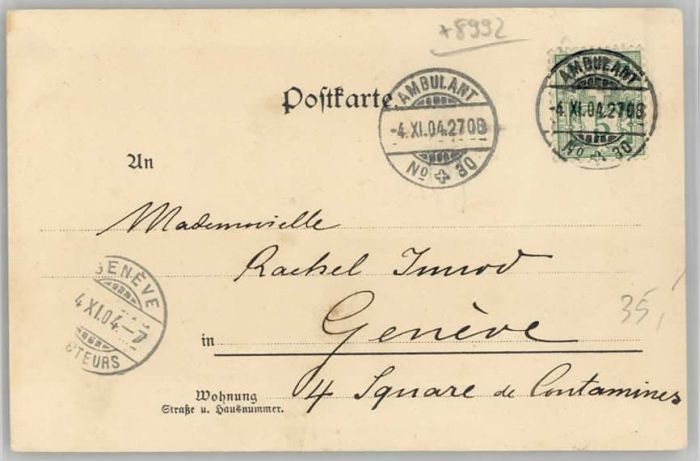 +8992
Postkarte.
AMBULANT
-4.XI.04.2708
No 30
AMBULANT
-4.XI.04.2708
No 30
5
An
Mademoiselle
Rachel Imrod
GENÈVE
4 XI.04-7
CTEURS
in Genève
35,
Wohnung
Straße u. Hausnummer.
4 Square de Contamines